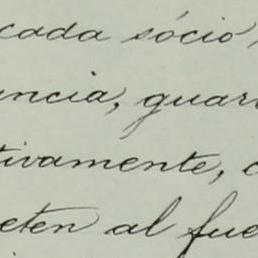 cada sócio,
uncia, guar
tivamente, c
eten al fue